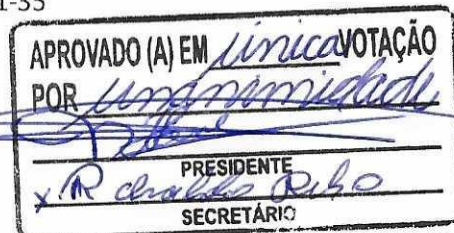 1-35
APROVADO (A) EM única VOTAÇÃO
POR unanimidade
PRESIDENTE
x
SECRETÁRIO